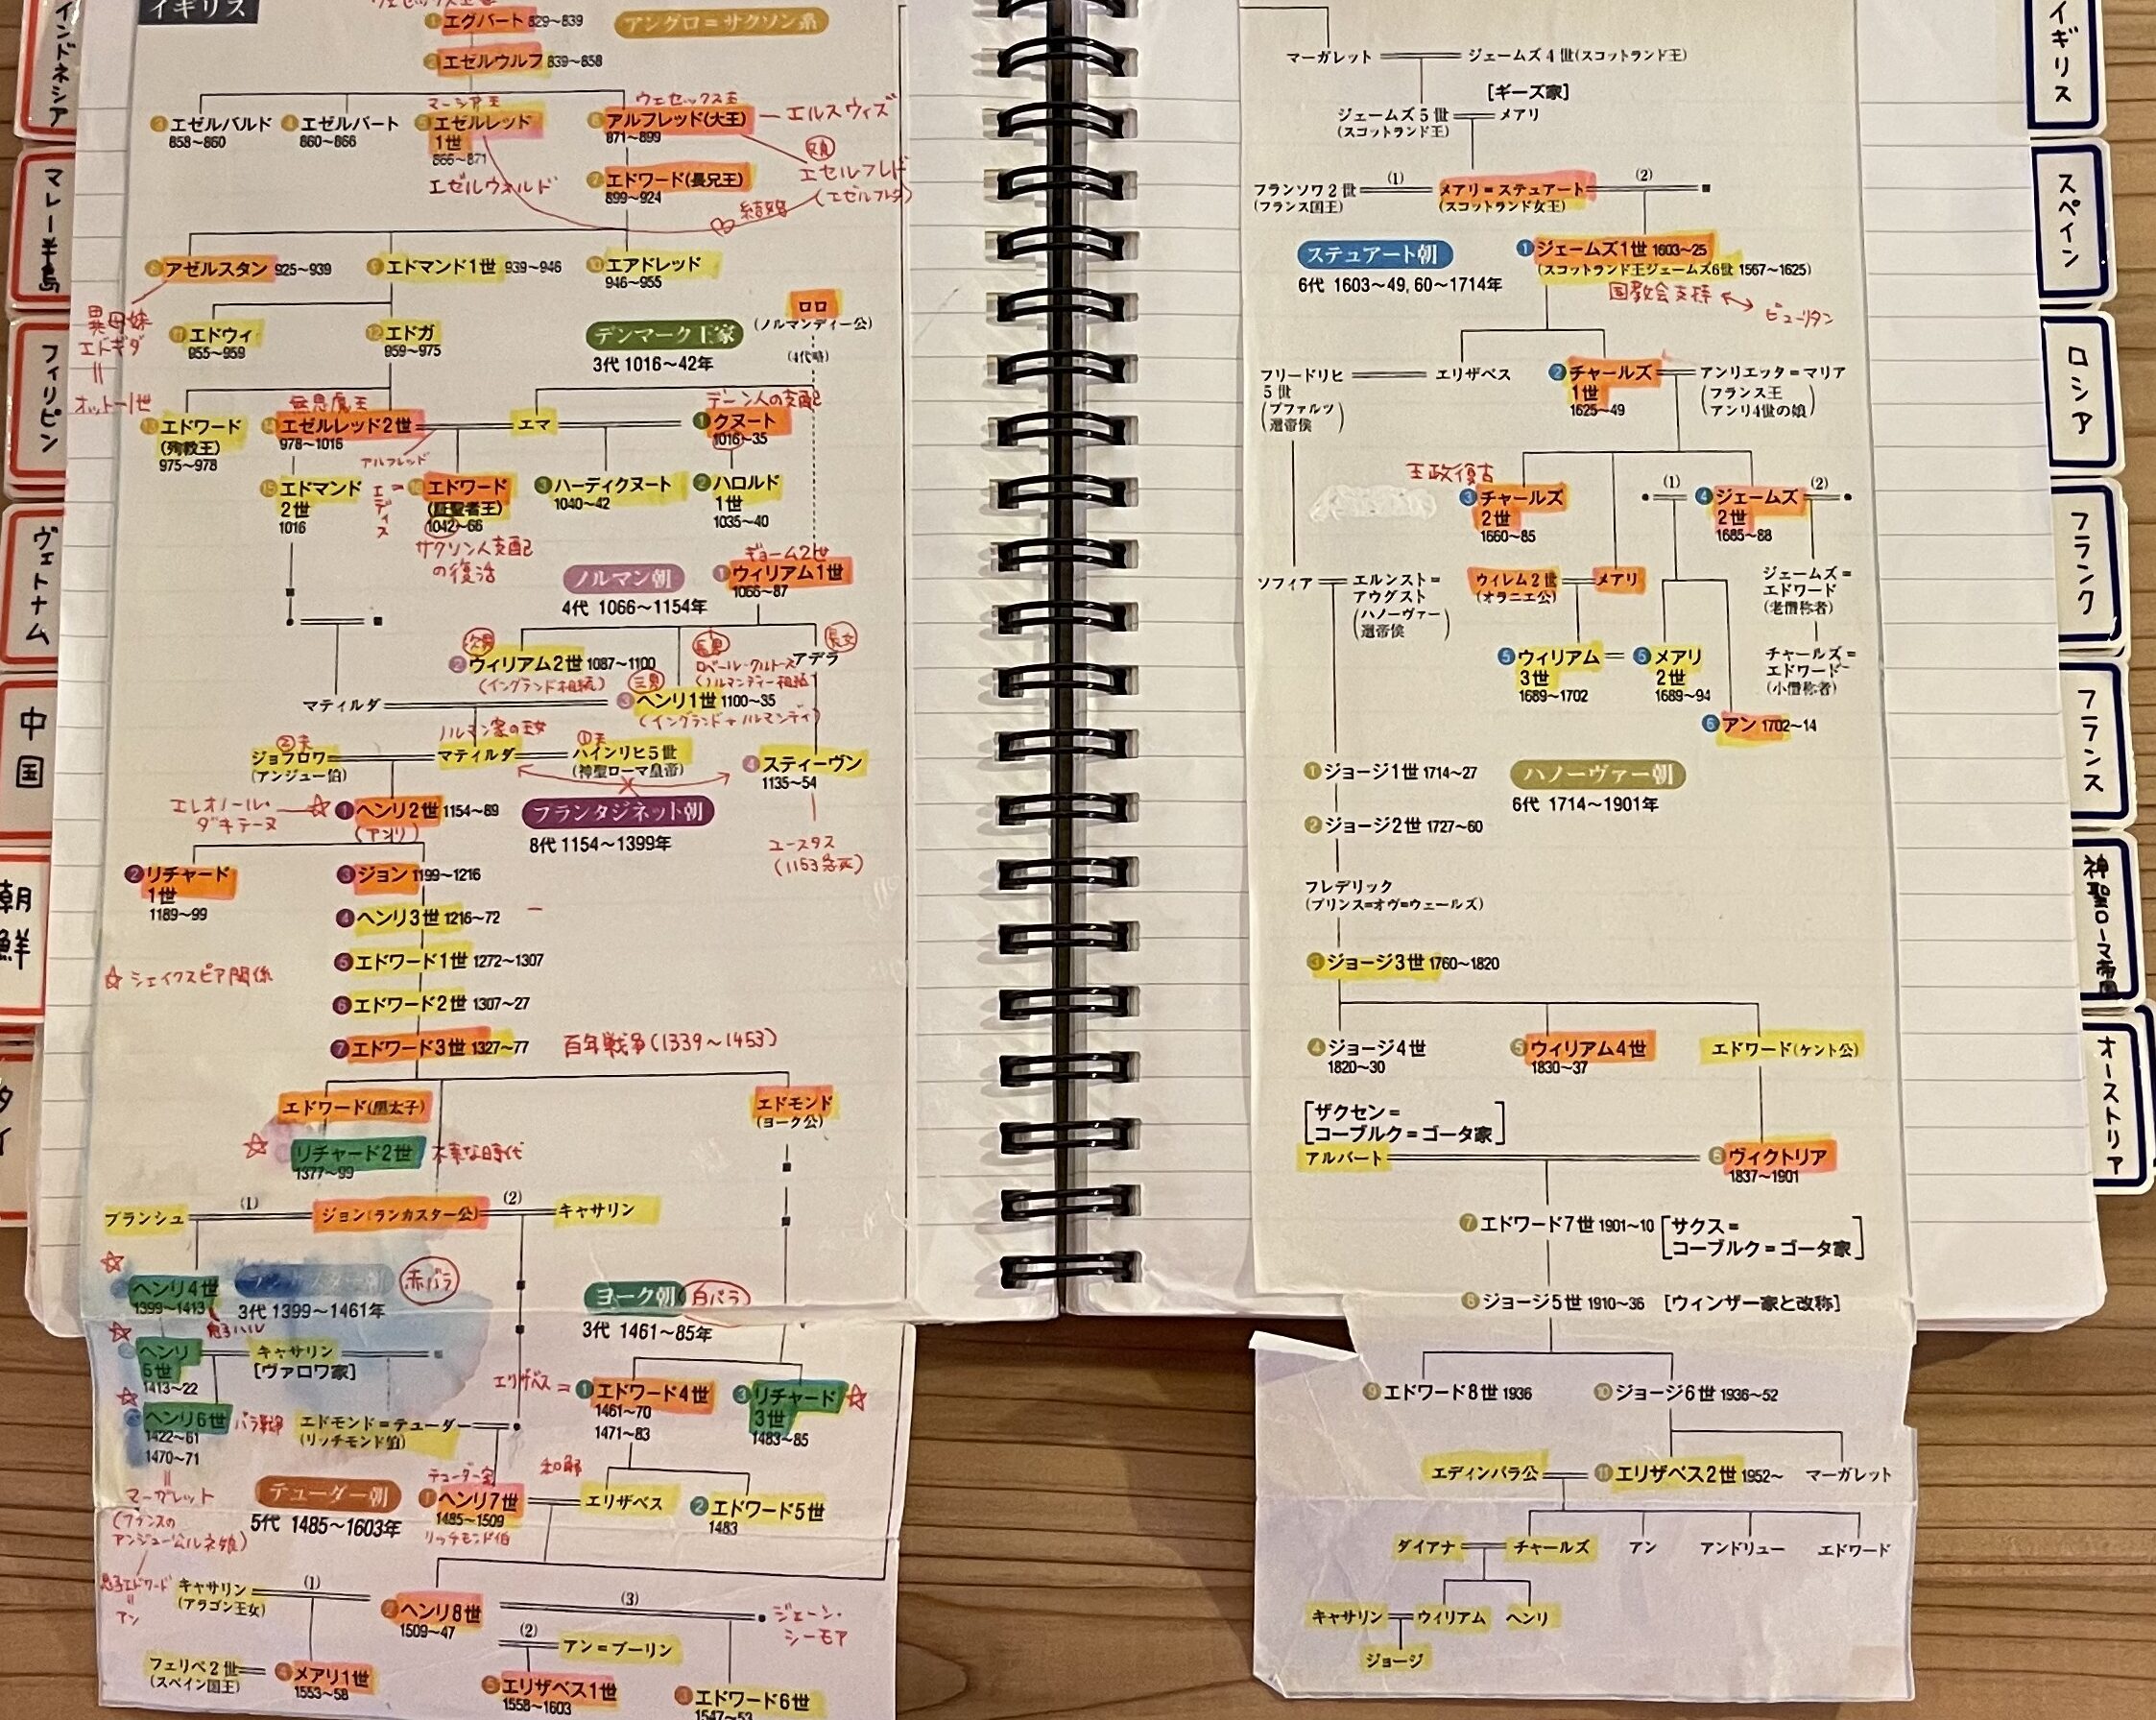 インドネシア
マレー半島
フィリピン
ヴェトナム
中国
朝鮮
タイ
イギリス
① エグバート 829〜839
アングロ=サクソン系
② エゼルウルフ 839〜858
マーシア王
ウェセックス王
③ エゼルバルド
858〜860
④ エゼルバート
860〜866
⑤ エゼルレッド
1世
866〜871
⑥ アルフレッド(大王)
871〜899
エルスウィズ
エゼルウォルド
⑦ エドワード(長兄王)
899〜924
娘
エセルフレド
(エゼルフレダ)
結婚
⑧ アゼルスタン 925〜939
⑨ エドマンド1世 939〜946
⑩ エアドレッド
946〜955
異母妹
エドギダ
||
オットー1世
⑪ エドウィ
955〜959
⑫ エドガ
959〜975
デンマーク王家
3代 1016〜42年
ロロ
(ノルマンディー公)
(4代略)
⑬ エドワード
(殉教王)
975〜978
無思慮王
⑭ エゼルレッド2世
978〜1016
アルフレッド
エマ
デーン人の支配
① クヌート
1016〜35
⑮ エドマンド
2世
1016
エディス
=
⑯ エドワード
(証聖者王)
1042〜66
サクソン人支配
の復活
③ ハーディクヌート
1040〜42
② ハロルド
1世
1035〜40
ノルマン朝
4代 1066〜1154年
ギョーム2世
① ウィリアム1世
1066〜87
次男
② ウィリアム2世 1087〜1100
(イングランド相続)
長男
ロベール・クルトース
(ノルマンディー相続)
長女
アデラ
三男
③ ヘンリ1世 1100〜35
(イングランド+ノルマンディ)
マティルダ
ノルマン家の王女
②夫
ジョフロワ
(アンジュー伯)
マティルダ
①夫
ハインリヒ5世
(神聖ローマ皇帝)
④ スティーヴン
1135〜54
エレオノール・
ダキテーヌ
☆
① ヘンリ2世 1154〜89
(アンリ)
プランタジネット朝
8代 1154〜1399年
ユースタス
(1153急死)
② リチャード
1世
1189〜99
③ ジョン 1199〜1216
④ ヘンリ3世 1216〜72
⑤ エドワード1世 1272〜1307
☆ シェイクスピア関係
⑥ エドワード2世 1307〜27
⑦ エドワード3世 1327〜77
百年戦争(1339〜1453)
エドワード(黒太子)
エドモンド
(ヨーク公)
☆
リチャード2世
1377〜99
ブランシュ
(1)
ジョン(ランカスター公)
(2)
キャサリン
☆
ヘンリ4世
1399〜1413
ランカスター朝
赤バラ
3代 1399〜1461年
息子ハル
ヨーク朝
白バラ
3代 1461〜85年
☆
ヘンリ
5世
1413〜22
キャサリン
[ヴァロワ家]
☆
ヘンリ6世
1422〜61
1470〜71
バラ戦争
エドモンド=テューダー
(リッチモンド伯)
エリザベス =
① エドワード4世
1461〜70
1471〜83
③ リチャード
3世
1483〜85
☆
||
マーガレット
(フランスの
アンジュー公ルネ娘)
息子エドワード
||
アン
テューダー朝
5代 1485〜1603年
テューダー家
① ヘンリ7世
1485〜1509
リッチモンド伯
和解
エリザベス
② エドワード5世
1483
キャサリン
(アラゴン王女)
(1)
② ヘンリ8世
1509〜47
(3)
ジェーン・
シーモア
(2)
アン=ブーリン
フェリペ2世
(スペイン国王)
④ メアリ1世
1553〜58
⑤ エリザベス1世
1558〜1603
③ エドワード6世
1547〜53
マーガレット
ジェームズ4世(スコットランド王)
[ギーズ家]
ジェームズ5世
(スコットランド王)
メアリ
フランソワ2世
(フランス国王)
(1)
メアリ=ステュアート
(スコットランド女王)
(2)
ステュアート朝
6代 1603〜49, 60〜1714年
① ジェームズ1世 1603〜25
(スコットランド王ジェームズ6世 1567〜1625)
国教会支持
ピューリタン
フリードリヒ
5世
(プファルツ
選帝侯)
エリザベス
② チャールズ
1世
1625〜49
アンリエッタ=マリア
(フランス王
アンリ4世の娘)
王政復古
③ チャールズ
2世
1660〜85
(1)
④ ジェームズ
2世
1685〜88
(2)
ソフィア
エルンスト=
アウグスト
(ハノーヴァー
選帝侯)
ウィレム2世
(オラニエ公)
メアリ
ジェームズ=
エドワード
(老僭称者)
⑤ ウィリアム
3世
1689〜1702
⑤ メアリ
2世
1689〜94
チャールズ=
エドワード
(小僭称者)
⑥ アン 1702〜14
① ジョージ1世 1714〜27
ハノーヴァー朝
6代 1714〜1901年
② ジョージ2世 1727〜60
フレデリック
(プリンス=オヴ=ウェールズ)
③ ジョージ3世 1760〜1820
④ ジョージ4世
1820〜30
⑤ ウィリアム4世
1830〜37
エドワード(ケント公)
[ザクセン=
コーブルク=ゴータ家]
アルバート
⑥ ヴィクトリア
1837〜1901
⑦ エドワード7世 1901〜10
[サクス=
コーブルク=ゴータ家]
⑧ ジョージ5世 1910〜36 [ウィンザー家と改称]
⑨ エドワード8世 1936
⑩ ジョージ6世 1936〜52
エディンバラ公
⑪ エリザベス2世 1952〜
マーガレット
ダイアナ
チャールズ
アン
アンドリュー
エドワード
キャサリン
ウィリアム
ヘンリ
ジョージ
イギリス
スペイン
ロシア
フランク
フランス
神聖ローマ帝国
オーストリア